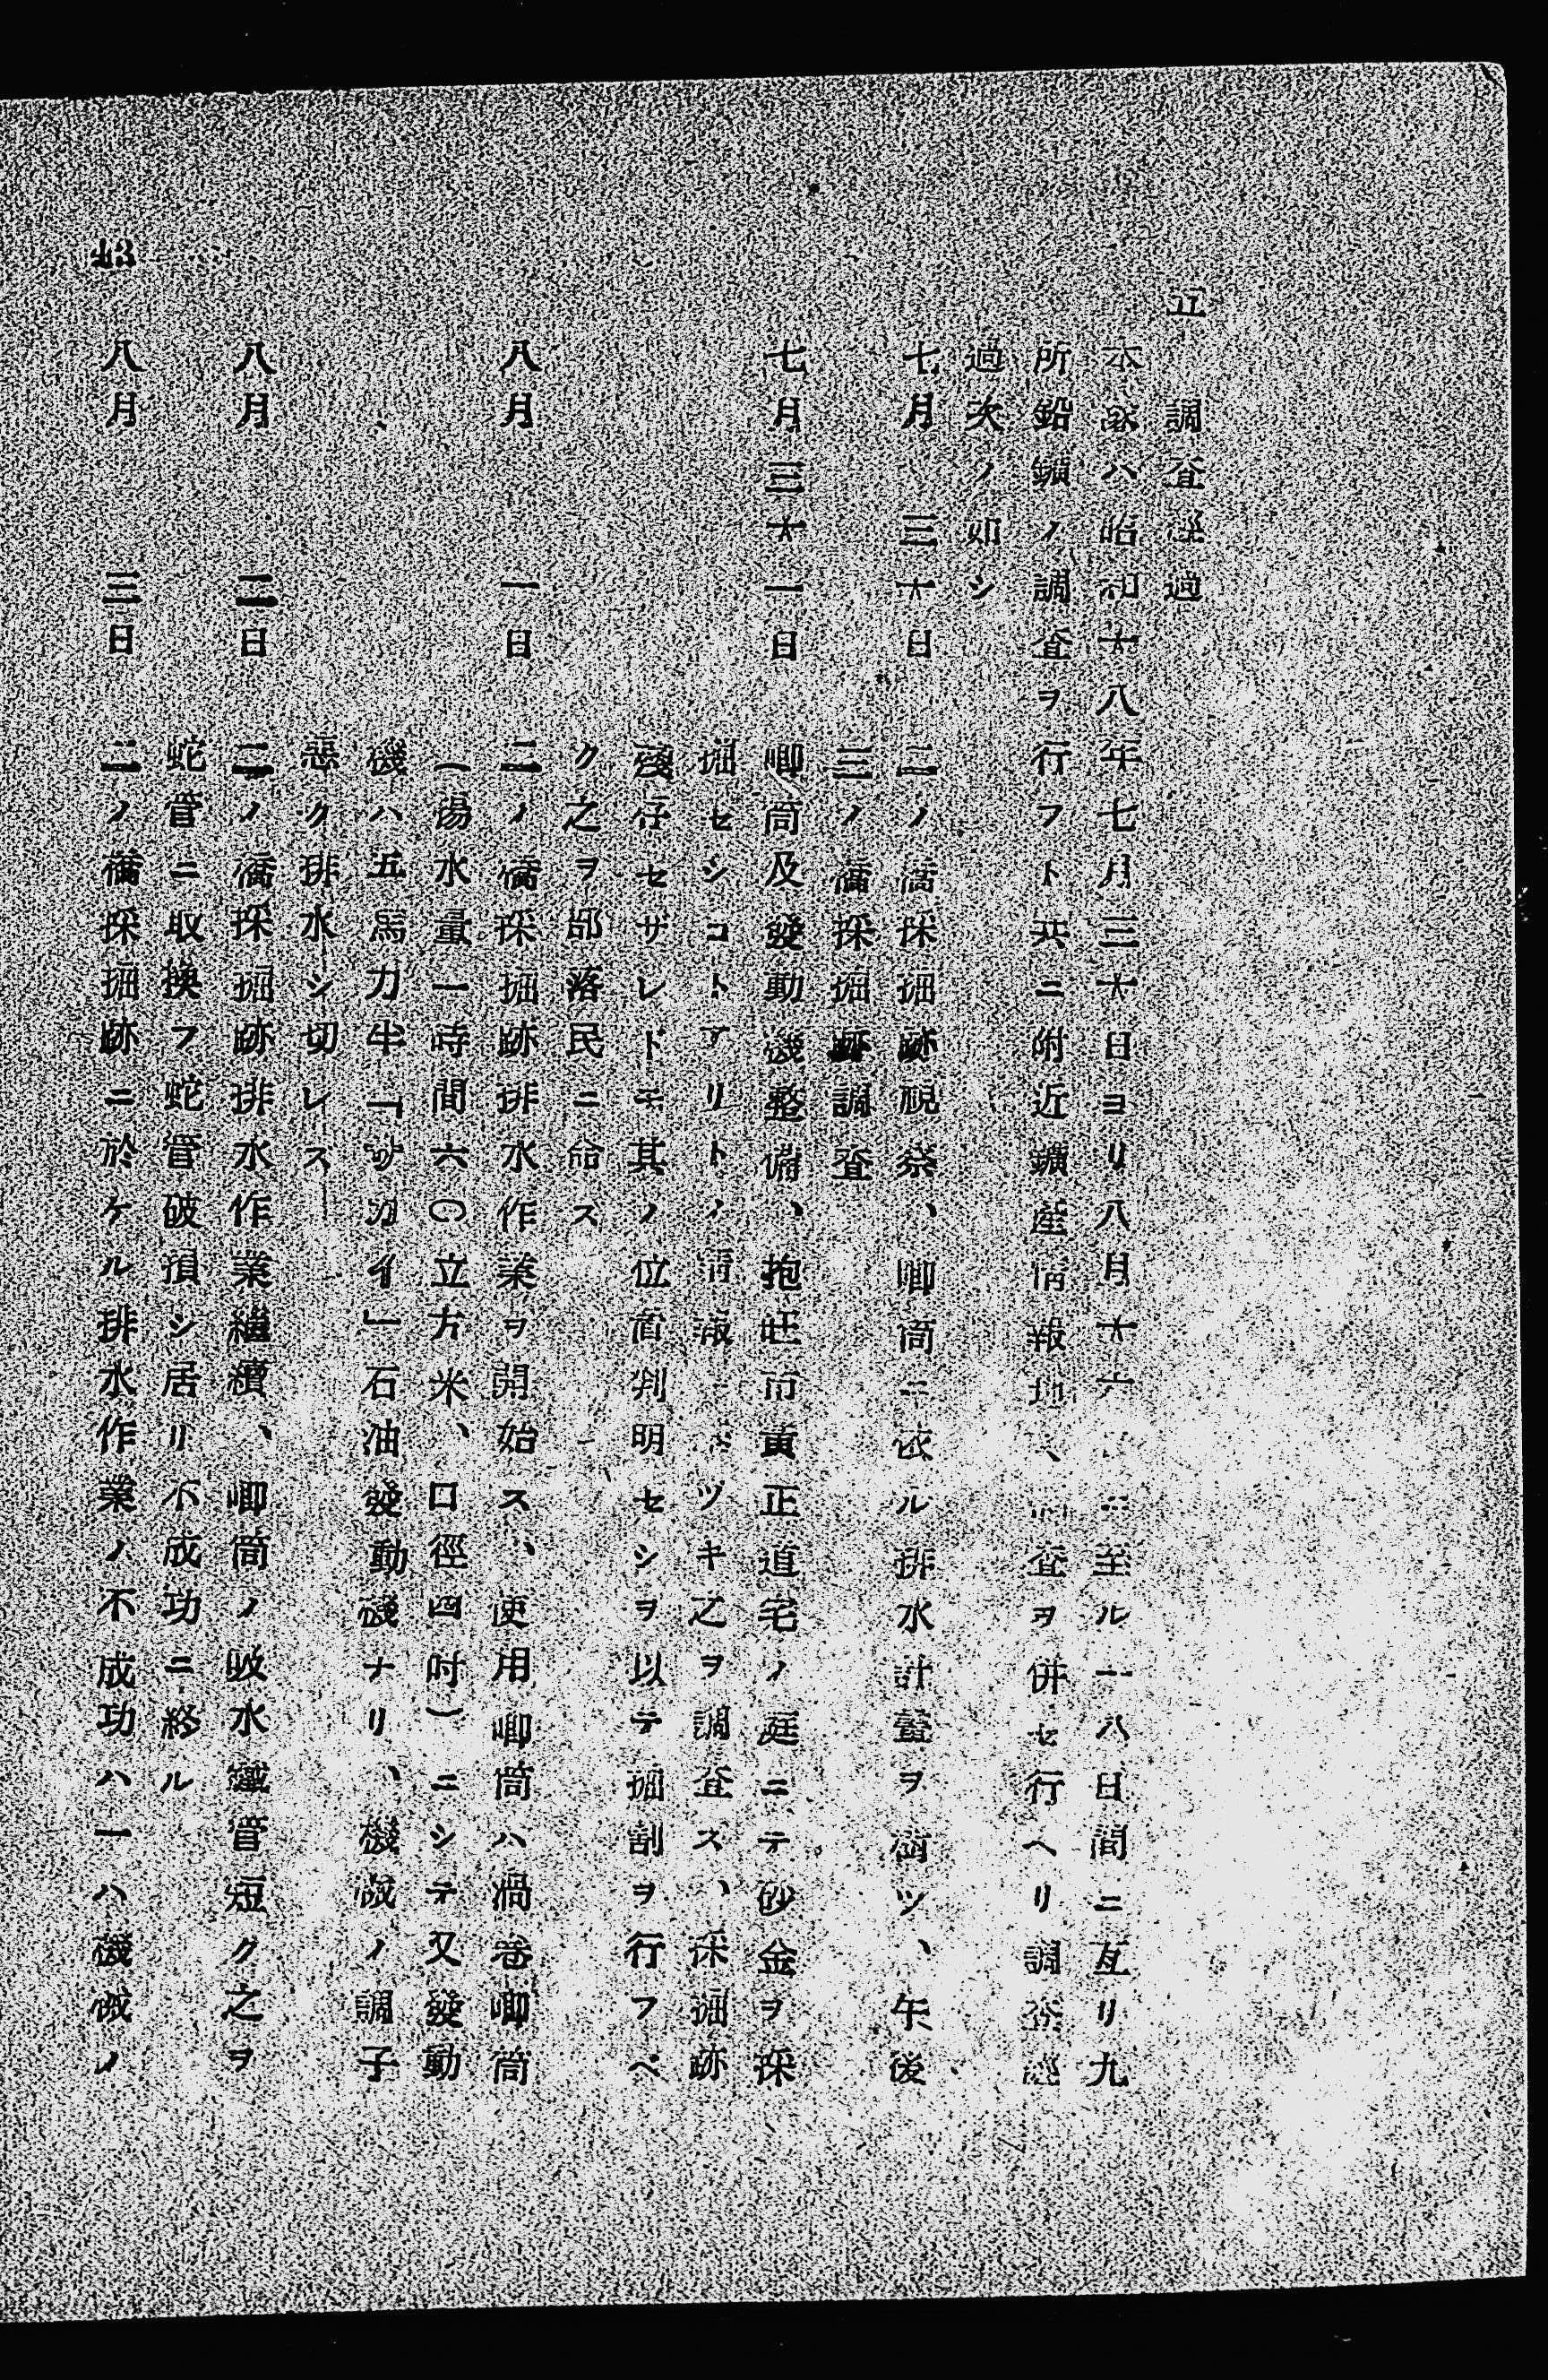 五 調査経過
本隊ハ昭和十八年七月三十日ヨリ八月十六日ニ至ル一八日間ニ亙リ九
所鉛鑛ノ調査ヲ行フト共ニ附近鑛産情報地、調査ヲ併セ行ヘリ調査經
過次ノ如シ
七月 三十日 二ノ樀採掘跡視察、喞筒ニ依ル排水計畫ヲ樹ツ、午後
三ノ樀採掘跡調査
七月三十一日 喞筒及發動機整備、抱旺市黄正道宅ノ庭ニテ砂金ヲ採
掘セシコトアリトノ情報ニツキ之ヲ調査ス、採掘跡
殘存セザレドモ其ノ位置判明セシヲ以テ掘割ヲ行フベ
ク之ヲ部落民ニ命ス
八月 一日 二ノ樀採掘跡排水作業ヲ開始ス、使用喞筒ハ渦卷喞筒
(揚水量一時間六〇立方米、口徑四吋)ニシテ又發動
機ハ五馬力半「サカイ」石油發動機ナリ、機械ノ調子
惡ク排水シ切レス
八月 二日 二ノ樀採掘跡排水作業繼續、喞筒ノ吸水鐵管短ク之ヲ
蛇管ニ取換フ蛇管破損シ居リ不成功ニ終ル
八月 三日 二ノ樀採掘跡ニ於ケル排水作業ノ不成功ハ一ハ機械ノ
43